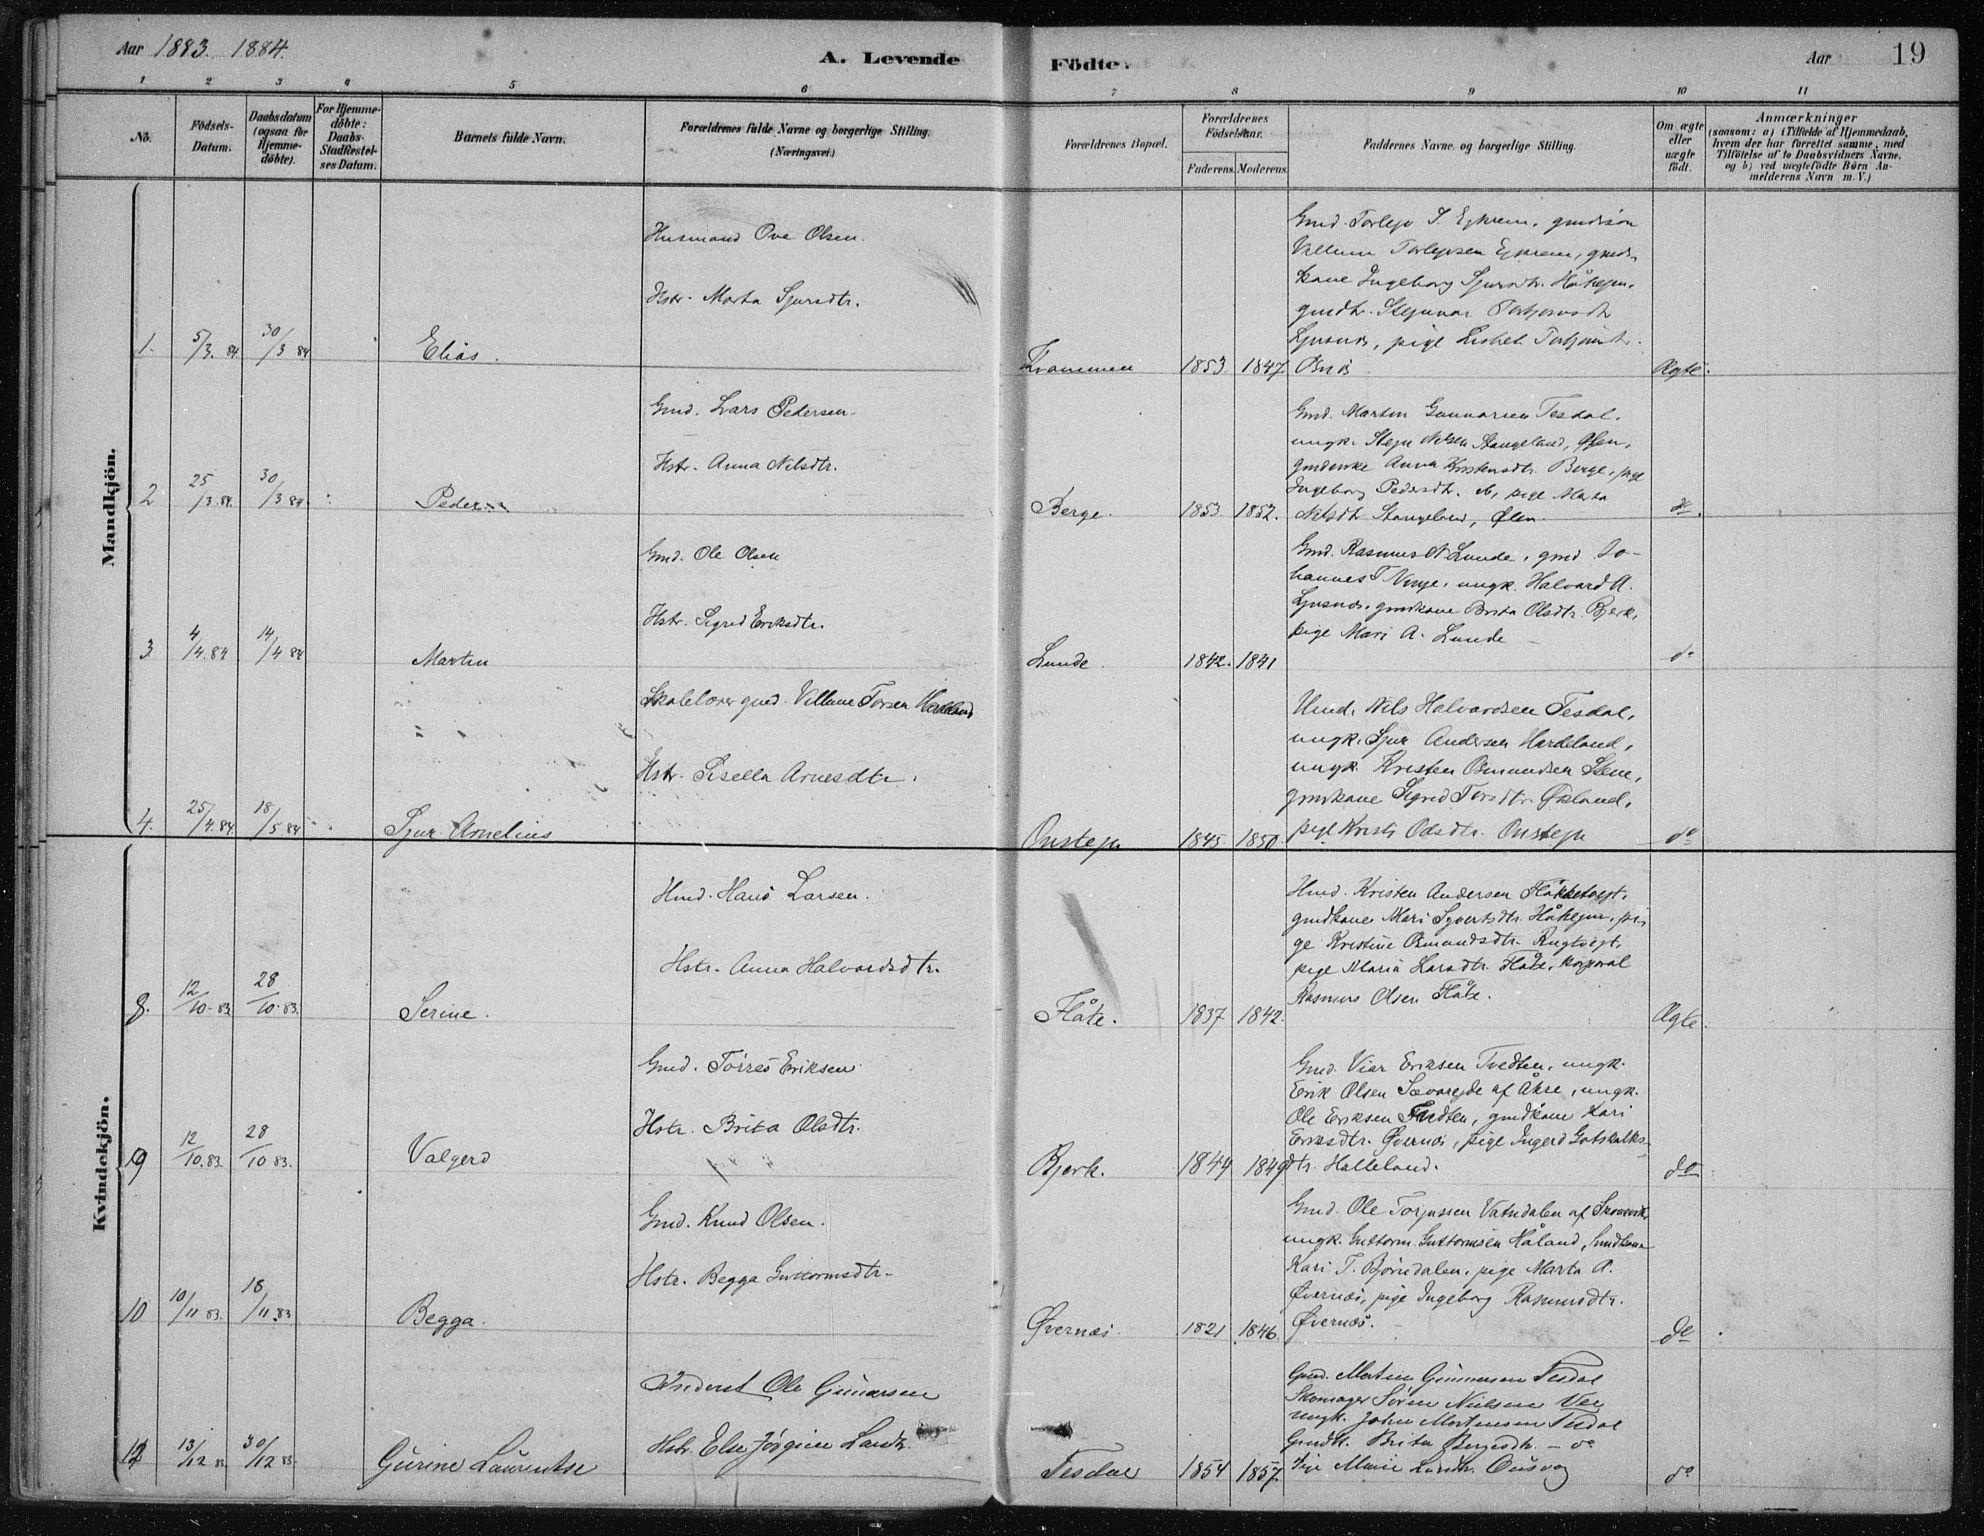 Aar 1883. 1884.
A. Levende Födte.
Aar 19
1 2 3 4 5 6 7 8 9 10 11
Nö.
Födsels-
Datum.
Daabsdatum
(ogsaa for
Hjemme-
döbte).
For Hjemme-
döbte:
Daabs-
Stadfæstel-
ses Datum.
Barnets fulde Navn.
Forældrenes fulde Navne og borgerlige Stilling.
(Næringsvei.)
Forældrenes Bopæl.
Forældrenes
Födselsaar.
Faderens. Moderens.
Faddernes Navne og borgerlige Stilling.
Om ægte
eller
uægte
födt.
Anmærkninger
(saasom: a) i Tilfælde af Hjemmedaab,
hvem der har forrettet samme, med
Tilföielse af to Daabsvidners Navne,
og b) ved uægtefödte Börn An-
melderens Navn m. V.)
Mandkjön.
1. 5/3. 84 30/3 84 Elias.
Husmand Ove Olsen.
Hstr. Marta Sjursdtr.
Krammen 1853 1847.
Gmd. Torlejv T. Ejkrem, gmdsön
Villum Torlejvsen Ejkrem, gmds-
kone Ingeborg Sjursdtr. Håhejm,
gmdtr. Stejnvor
Ljusnes, pige Lisbet
Ægte.
2 25/3. 84. 30/3 84. Peder
Gmd. Lars Pedersen.
Hstr. Anna Nilsdtr.
Berge. 1853 1852.
Gmd. Martin Gunnarsen Tesdal,
ungk. Stejn Nilsen Stangeland, Ølen,
gmdenke Anna Kristensdtr. Berge, pige
Ingeborg Pedersdtr. ib, pige Marta
Nilsdtr Stangeland, Ølen.
do.
3. 4/4. 84 14/4 84 Martin
Gmd. Ole Olsen
Hstr. Sigrid Eriksdtr.
Lunde 1842. 1841
Gmd. Rasmus N Lunde, gmd Jo-
hannes T Vinje, ungk. Halvard A.
Ljusnes, gmdkone Brita Olsdtr. Bjerk,
pige Mari A. Lunde
do
4. 25/4. 84 18/5 84 Sjur Arnelius
Skolelærer gmd. Villum Torsen Hardeland
Hstr. Sisella Arnesdtr.
Onstejn 1845. 1850.
Umd. Nils Halvardsen Tesdal,
ungk. Sjur Andersen Hardeland,
ungk. Kristen Osmundsen Stene,
gmdkone Sigrid Torsdtr. Økland,
pige Kristi Odsdtr. Onstejn
do
Kvindekjön.
8. 12/10. 83 28/10. 83. Serine.
Hmd. Hans Larsen.
Hstr. Anna Halvardsdtr.
Flåte. 1837. 1842.
Hmd. Kristen Andersen
gmdkone Mari Syvertsdtr. Håhejm, pi-
ge Kristine Osmundsdtr. Rugtvejt,
pige Maria Larsdtr. Flåte, korporal
Rasmus Olsen Flåte.
Ægte.
9 12/10. 83. 28/10 83. Valgerd
Gmd. Törres Eriksen
Hstr. Brita Olsdtr.
Bjerk. 1844 1849
Gmd. Viar Eriksen Tvedten, ungk.
Erik Olsen Sævarejde af Åkre, ungk.
Ole Eriksen Tvedten, gmdkone Kari
Eriksdtr. Øvernes, pige Ingerd Gotskalks-
dtr. Halleland.
do
10 10/11 83. 18/11. 83 Begga.
Gmd. Knud Olsen.
Hstr. Begga Guttormsdtr.
Øvernes. 1821 1846.
Gmd. Ole Torjussen Vatndalen af Skonevik,
ungk. Guttorm Guttormsen Håland, gmdkone
Kari T. Bjørndalen, pige Marta A.
Øvernes, pige Ingeborg Rasmusdtr.
Øvernes.
do
12 13/12 83. 30/12 83. Gurine Laurentse
Inderst Ole Gunnarsen
Hstr. Else Jörgine Larsdtr.
Tesdal 1854 1857.
Gmd. Martin Gunnarsen Tesdal
Skomager Sören Nielsen Vee
ungk. John Mortensen Tesdal
Gmdk. Brita Børgesdtr. – do
Pige Marie Larsdtr. Ousvog
do